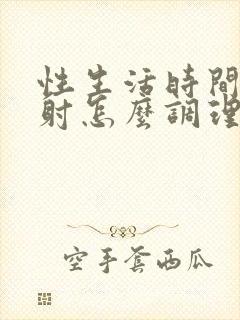 性生活時間
射怎麼調理
空手套西瓜